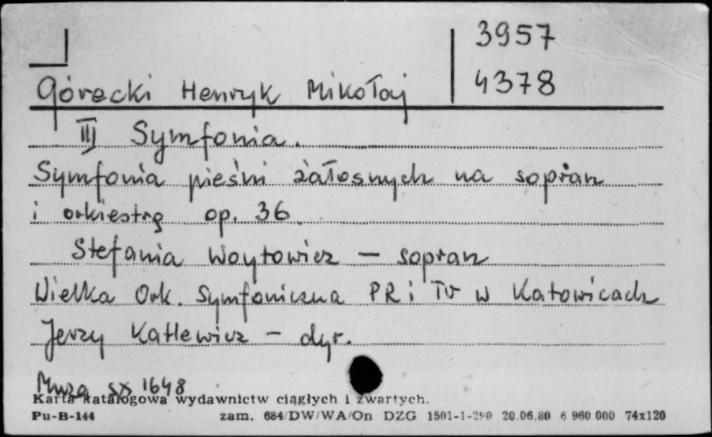 3957
Górecki Henryk Mikołaj 4378
III Symfonia.
Symfonia pieśni żałosnych na sopran
i orkiestrę op. 36
Stefania Woytowicz – sopran
Wielka Ork. Symfoniczna PR i TV w Katowicach
Jerzy Katlewicz – dyr.
Muza SX 1648
Karta katalogowa wydawnictw ciągłych i zwartych.
Pu-B-144 zam. 684/DW/WA/On DZG 1501-1-290 20.06.80 6 960 000 74x120